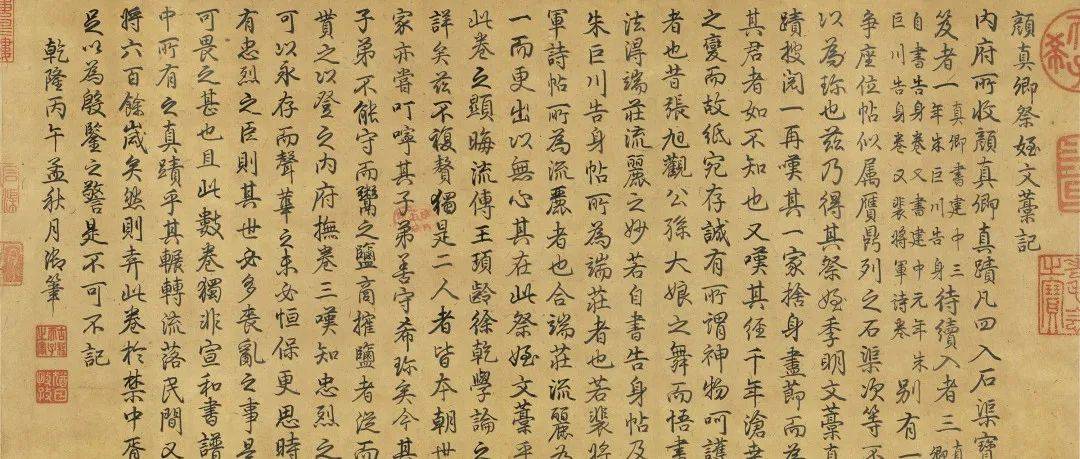 顔真卿祭姪文藁記
内府所收顔真卿真蹟凡四入石渠寳
笈者一真卿書建中三年朱巨川告身待續入者三真
自書告身卷又書建中元年朱巨川告身卷又裴將軍诗卷别有一
争座位帖似属贋鼎列之石渠次等不
以為珎也兹乃得其祭姪季明文藁真
蹟披閲一再嘆其一家捨身盡節而為
其君者如不知也又嘆其經千年滄桒
之變而故紙宛存誠有所謂神物呵護
者也昔張旭觀公孫大娘之舞而悟書
法得端莊流麗之妙若自書告身帖及
朱巨川告身帖所為端莊者也若裴將
軍詩帖所為流麗者也合端莊流麗為
一而更出以無心其在此祭姪文藁乎
此卷之顯晦流傳王頊齡徐乾學論之
詳矣兹不複贅獨是二人者皆本朝世
家亦嘗叮嚀其子弟善守希珎矣今其
子弟不能守而鬻之鹽商搉鹽者從而
賮之以登之内府撫卷三嘆知忠烈之
可以永存而聲華之未必恒保更思時
有忠烈之臣則其世必多喪亂之事是
可畏之甚也且此數卷獨非宣和書譜
中所有之真蹟乎其輾轉流落民間又
將六百餘嵗矣然則弆此卷於禁中胥
足以為殷鑒之警是不可不記
乾隆丙午孟秋月御筆